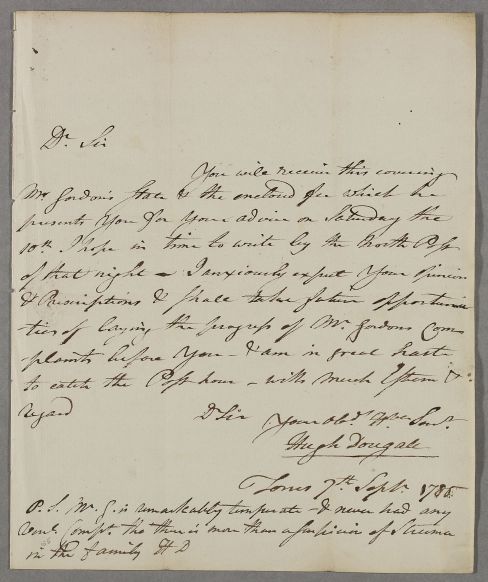 Dr. Sir
You will receive this covering
Mr Gordon's State & the enclosed fee which he
presents You for Your advice on Saturday the
10th. I hope in time to write by the North Post
of that night - I anxiously expect Your Opinion
& Prescriptions & shall take future opportuni
ties of laying the progress of Mr. Gordons Com
plaints before You - & am in great haste
to catch the Post hour - with much Esteem &
regard
Dr Sir
Your Obt. Hble Servt.
Hugh Dougall
Forres 7th. Septr. 1785
P.S. Mr. G. is remarkably temperate - & never had any
Venl. Compt. tho there is more than a Suspicion of Struma
in the family H D